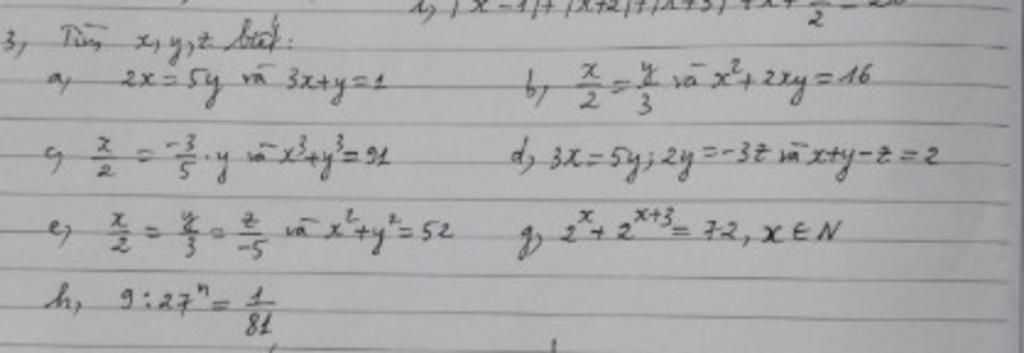 3, Tìm x, y, z biết:
a, 2x = 5y và 3x+y = 1 b, x/2 = y/3 và x² + 2xy = 16
c, x/2 = -3/5 . y và x³+y³ = 91 d, 3x = 5y ; 2y = -3z và x+y-z = 2
e, x/2 = y/3 = z/-5 và x² + y² = 52 g, 2^x + 2^(x+3) = 72, x ∈ N
h, 9 : 27^n = 1/81